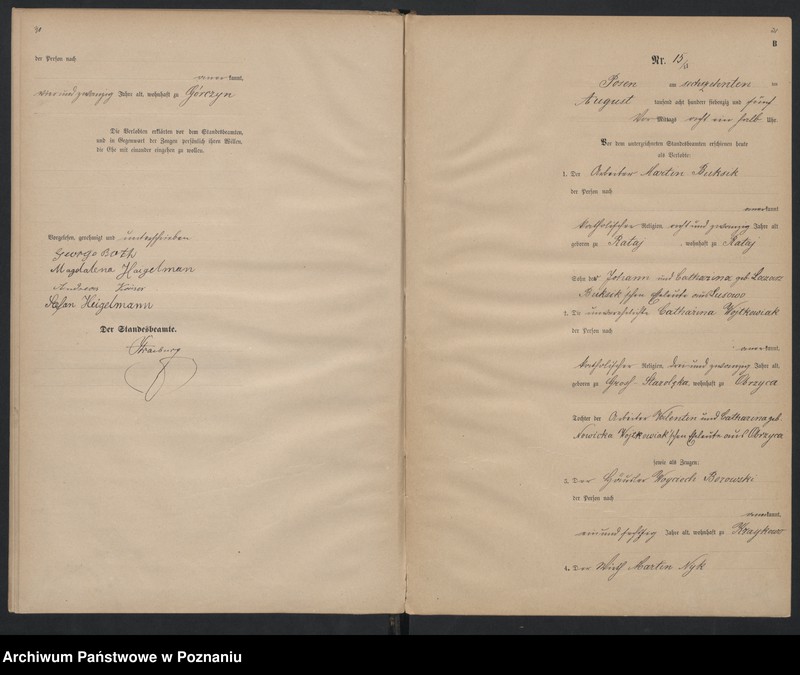 der Person nach
aner kannt,
vier und zwanzig Jahre alt, wohnhaft zu Górczyn
Die Verlobten erklärten vor dem Standesbeamten,
und in Gegenwart der Zeugen persönlich ihren Willen,
die Ehe mit einander eingehen zu wollen.
Vorgelesen, genehmigt und unterschrieben
George Both
Magdalena Heigelman
Andreas
Stefan Heigelmann
Der Standesbeamte.
21
B
Nr. 15/
Posen am sechszehnten
August tausend acht hundert siebenzig und fünf
Vor Mittags acht ein halb Uhr.
Vor dem unterzeichneten Standesbeamten erschienen heute
als Verlobte:
1. Der Arbeiter Martin Buksik
der Person nach
anerkannt
katholischer Religion, acht und zwanzig Jahre alt
geboren zu Rataj, wohnhaft zu Rataj
Sohn des Johann und Catharina geb.
Buksik'schen Eheleute aus
2. Die unverehelichte Catharina Wojtkowiak
der Person nach
anerkannt,
katholischer Religion, drei und zwanzig Jahre alt,
geboren zu wohnhaft zu Obrzyca
Tochter der Arbeiter Valentin und Catharina geb.
Nowicka Wojtkowiak'schen Eheleute aus Obrzyca
sowie als Zeugen:
3. Der Häusler Woyciech Borowski
der Person nach
anerkannt,
ein und sechszig Jahre alt, wohnhaft zu
4. Der Wirth Martin Nyk
Archiwum Państwowe w Poznaniu